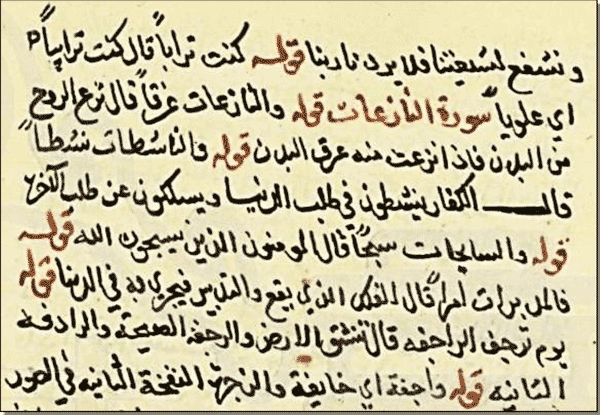 ونشفع لشيعتنا فلا يردنا ربنا قوله كنت تراباً قال كنت ترابياً
اي علوياً سورة النازعات قوله والنازعات غرقاً قال نزع الروح
من البدن فاذا نزعت منه عرق البدن قوله والناشطات نشطاً
قال الكفار ينشطون في طلب الدنيا ويسلكون عن طلب الآخرة
قوله والسابحات سبحاً قال المومنون الذين يسبحون الله قوله
فالمدبرات امراً قال الفلك الذي يقع والتدبير فيجري به في الدنيا قوله
يوم ترجف الراجفه قال تنشق الارض والرجفه الصيحة والرادفه
الثانيه قوله واجفة اي خايفة والزجرة النفخة الثانيه في الصور